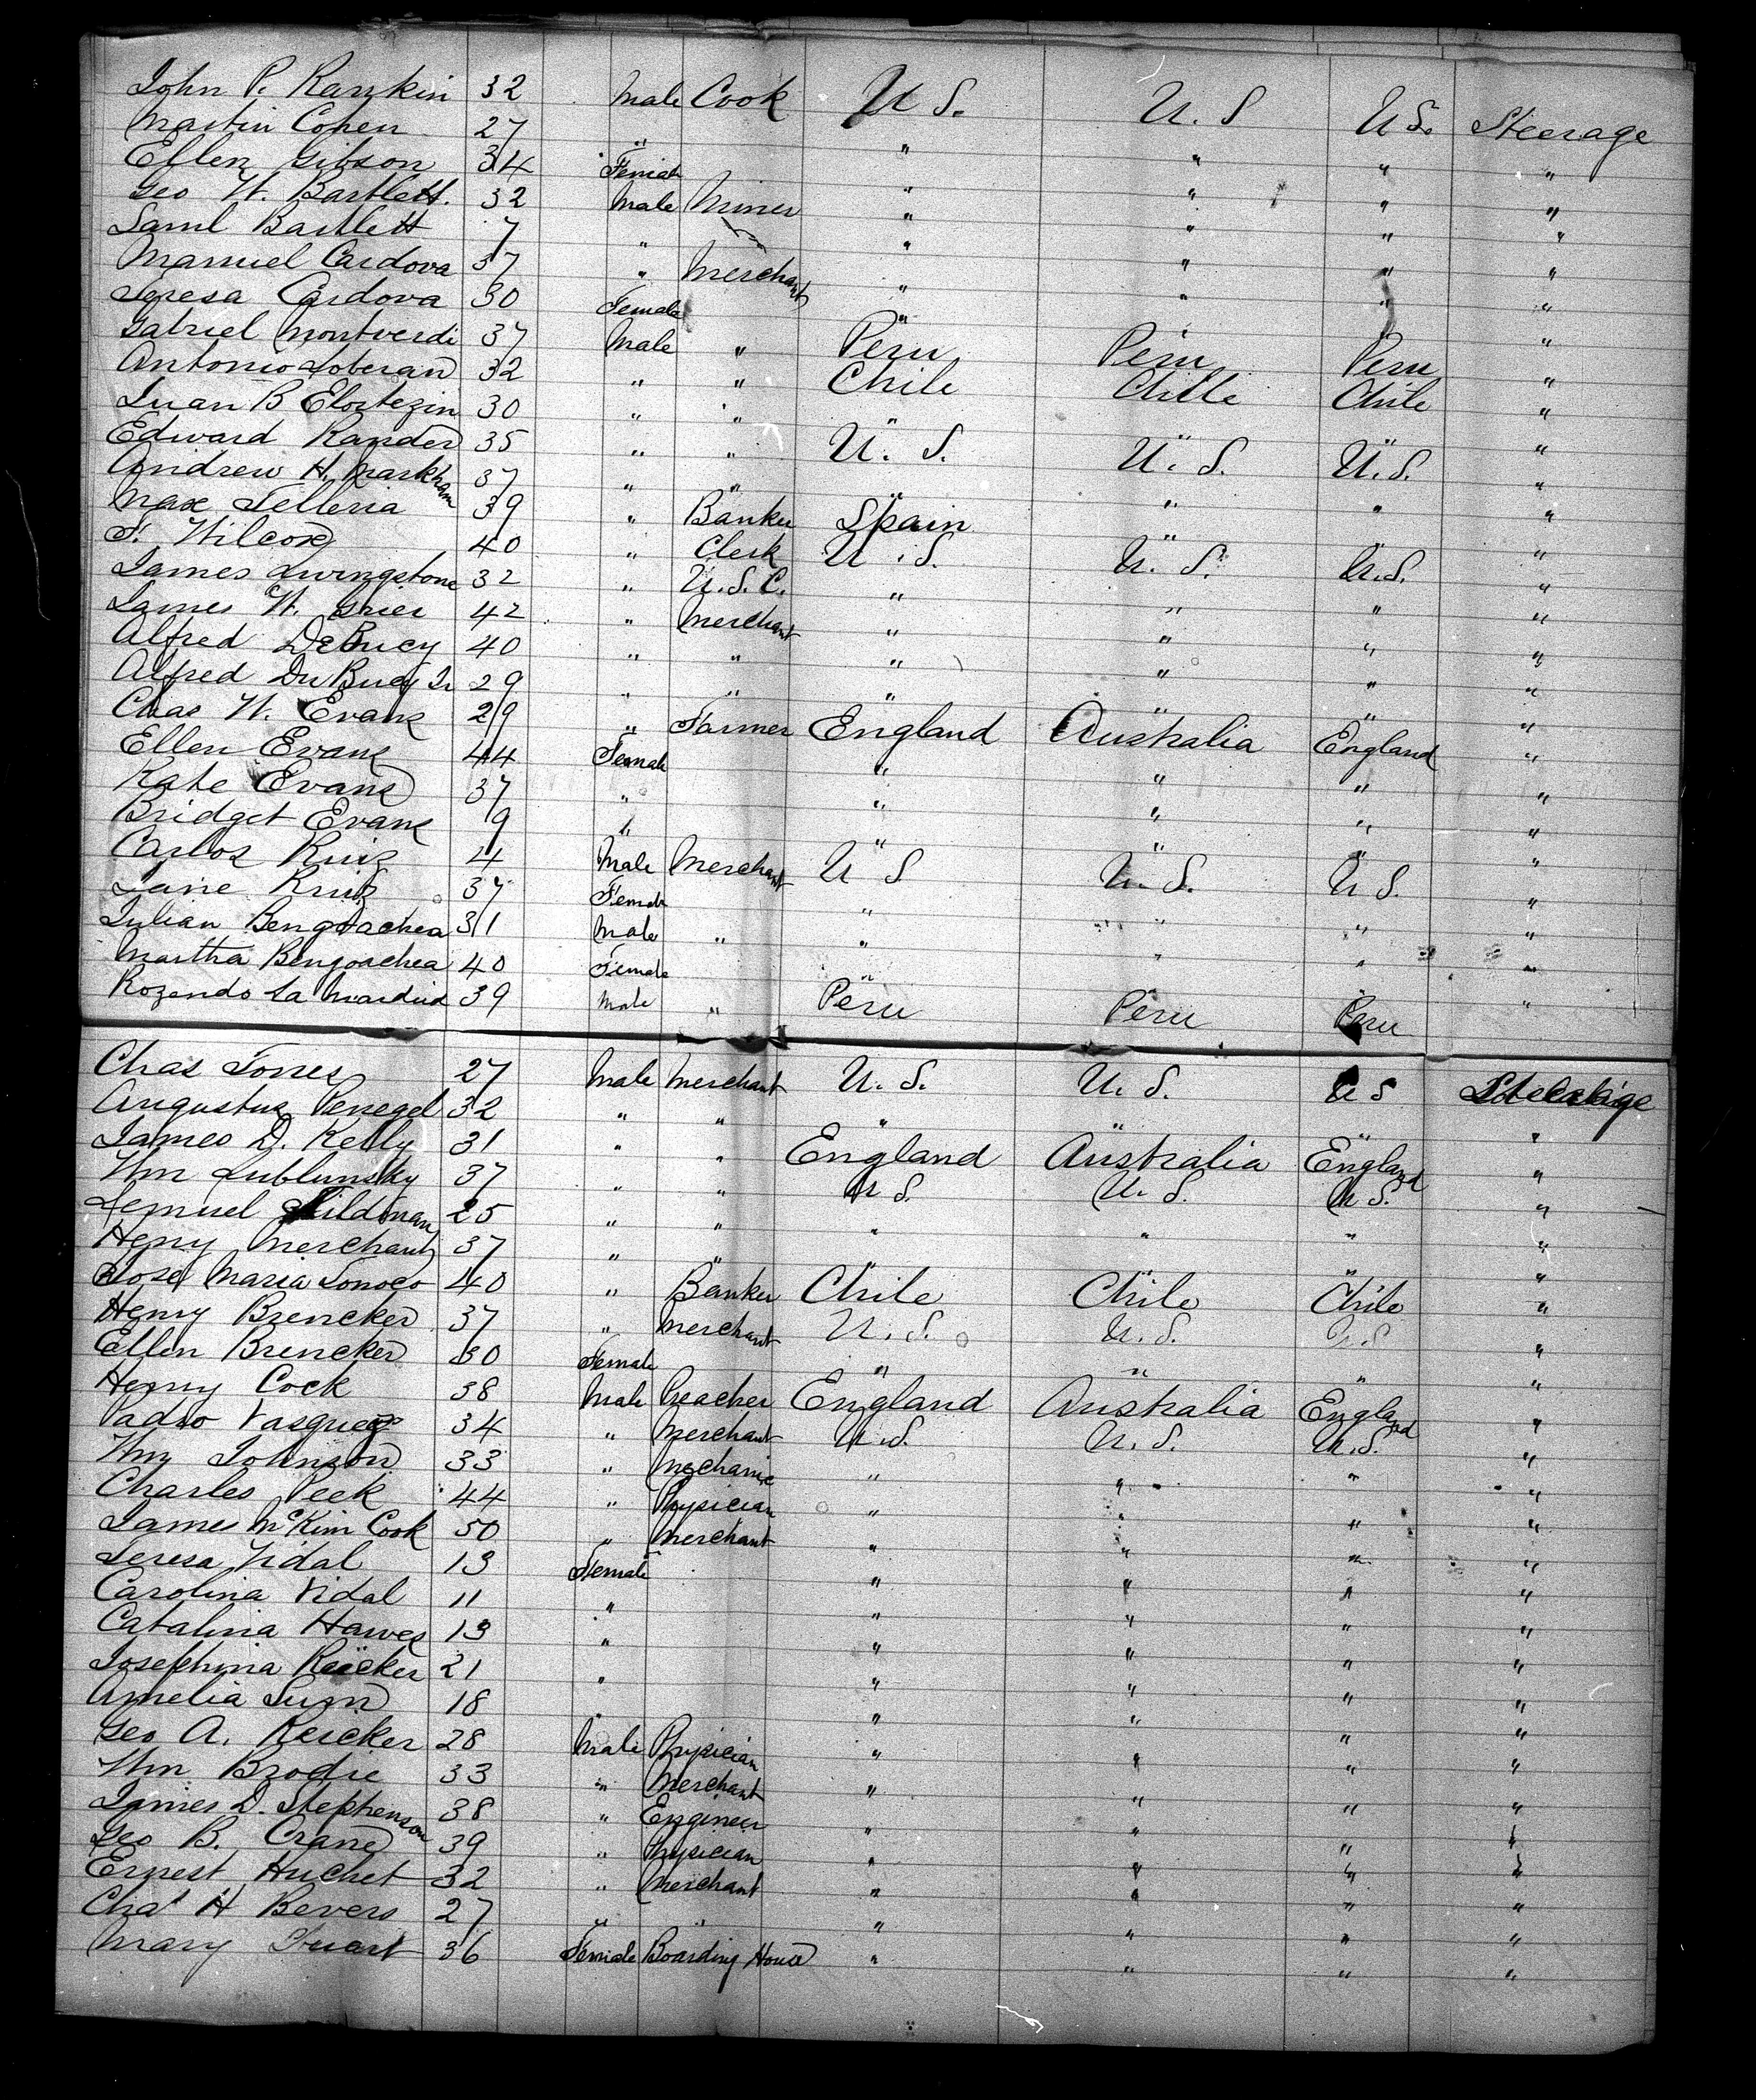 John P. Rankin 32 Male Cook U S. U. S U S. Steerage
Martin Cohen 27 " " " " "
Ellen Gibson 34 Female " " " "
Geo W. Bartlett. 32 Male Miner " " " "
Saml Bartlett 7 " " " " "
Manuel Cardova 37 " Merchant " " " "
Teresa Cardova 30 Female " " " "
Gabriel Montverdi 37 Male " Peru Peru Peru "
Antonio Soberan 32 " " Chile Chile Chile "
Juan B 30 " " " " " "
Edward 35 " " U. S. U. S. U.S. "
Andrew H. Markham 37 " " " " " "
Max Telleria 39 " Banker Spain " " "
Wilcox 40 " Clerk U.S. U. S. U.S. "
James Livingstone 32 " U.S.C. " " " "
James W. Grier 42 " Merchant " " " "
Alfred DeBucy 40 " " " " " "
Alfred DuBucy Jr 29 " " " " " "
Chas W. Evans 29 " Farmer England Australia England "
Ellen Evans 44 Female " " " "
Kate Evans 37 " " " " "
Bridget Evans 9 " " " " "
Carlos Ruiz 4 Male Merchant U S U. S. U S. "
Jane Ruiz 37 Female " " " "
Julian Bengoachea 31 Male " " " " "
Martha Bengoachea 40 Female " " " "
Rozendo La Mardrid 39 Male " Peru Peru Peru "
Chas Jones 27 Male Merchant U. S. U. S. U S Steerage
Augustus Penegal 32 " " " " " "
James D. Kelly 31 " " England Australia England "
Wm Lublunsky 37 " " U S. U. S. U S. "
Lemuel 25 " " " " " "
Henry Merchant 37 " " " " " "
Jose Maria 40 " Banker Chile Chile Chile "
Henry Brencker 37 " Merchant U. S. U. S. U.S "
Ellen Brencker 30 Female " " " "
Henry Cock 38 Male Preacher England Australia England "
Padro Vasquez 34 " Merchant U.S. U. S. U.S. "
Wm Johnson 33 " Mechanic " " " "
Charles Peek 44 " Physician " " " "
James McKim Cook 50 " Merchant " " " "
Teresa Vidal 13 Female " " " "
Carolina Vidal 11 " " " " "
Catalina Hawes 13 " " " " "
Josephina Reicker 21 " " " " "
Amelia 18 " " " " "
Geo A. Reicker 28 Male Physician " " " "
Wm Brodie 33 " Merchant " " " "
James D. Stephenson 38 " Engineer " " " "
Geo B. Crane 39 " Physician " " " "
Ernest Huchet 32 " Merchant " " " "
Chas H Bevers 27 " " " " " "
Mary 36 Female Boarding House " " " "